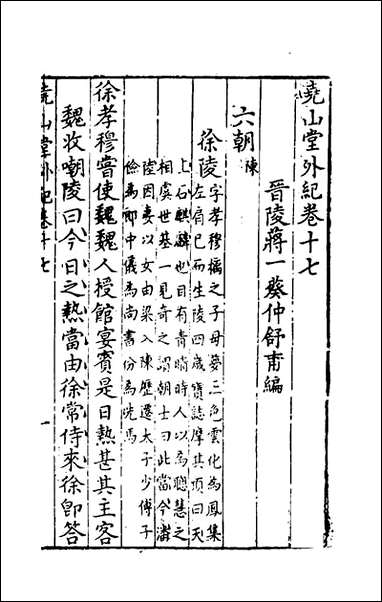 堯山堂外紀卷十七
晉陵蔣一葵仲舒甫編
六朝
陳
徐陵
字孝穆摛之子母夢三色雲化為鳳集
左肩巳而生陵四歲寶誌摩其頂曰天
上石麒麟也目有青睛時人以為聰慧之
相虞世基一見奇之謂朝士曰此當今潘
陸因妻以女由梁入陳歷遷太子少傅子
儉為郎中儀為尚書份為洗馬
徐孝穆嘗使魏魏人授館宴賓是日熱甚其主客
魏收嘲陵曰今日之熱當由徐常侍來徐即答
堯山堂外紀卷十七
一